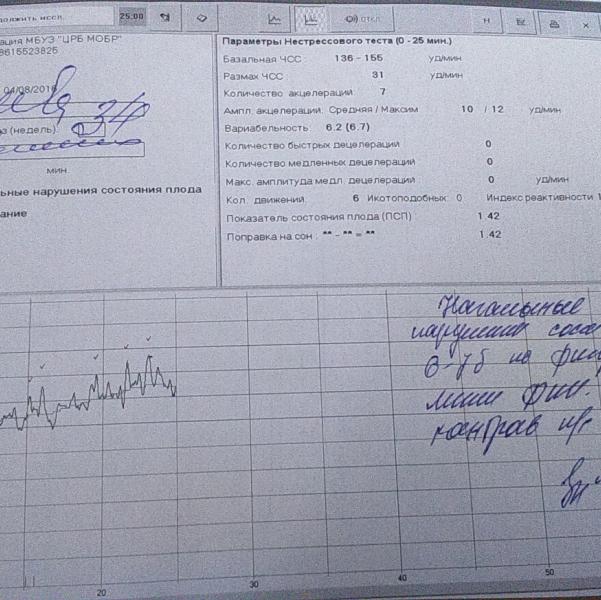 должить иссл.
25:00
откл.
Н
ация МБУЗ "ЦРБ МОБР"
8615523825
04/08/2016
з (недель)
34
мин
ьные нарушения состояния плода
ание
Параметры Нестрессового теста (0 - 25 мин.)
Базальная ЧСС 136 - 155 уд/мин
Размах ЧСС 31 уд/мин
Количество акцелерации 7
Ампл. акцелерации: Средняя / Максим 10 / 12 уд/мин
Вариабельность 6.2 (6.7)
Количество быстрых децелерации 0
Количество медленных децелерации 0
Макс. амплитуда медл. децелерации 0 уд/мин
Кол. движений: 6 Икотоподобных: 0 Индекс реактивности 1
Показатель состояния плода (ПСП) 1.42
Поправка на сон : ** - ** = ** 1.42
Начальные
нарушения сос
на
20
30
40
50